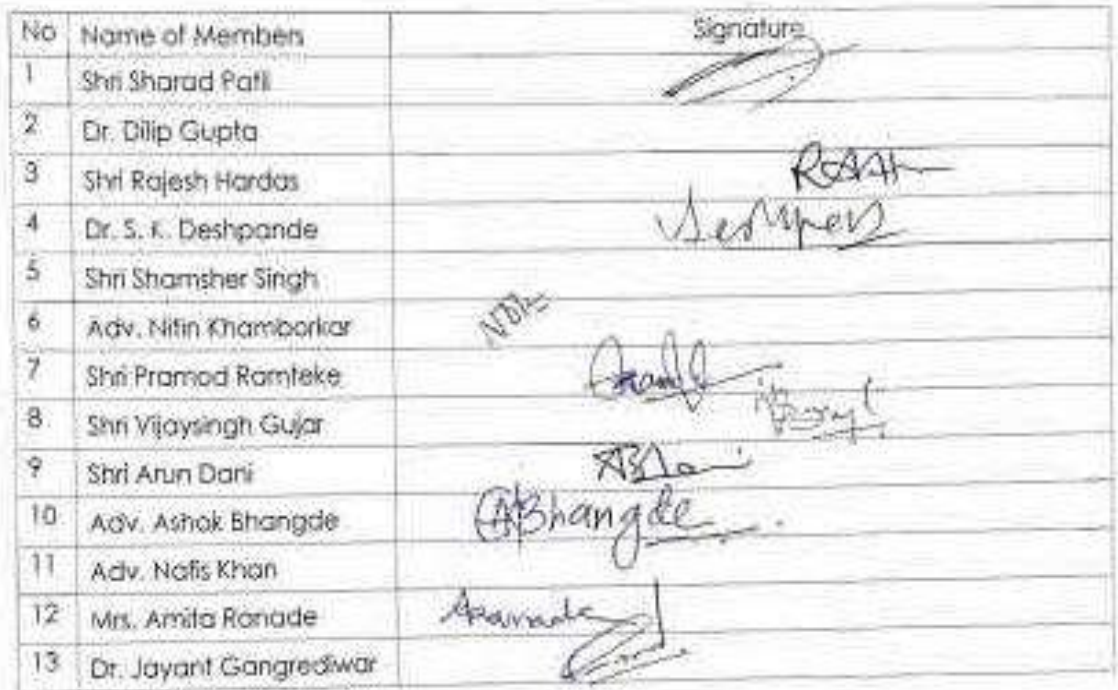 No Name of Members Signature
1 Shri Sharad Patil
2 Dr. Dilip Gupta
3 Shri Rajesh Hardas
4 Dr. S. K. Deshpande
5 Shri Shamsher Singh
6 Adv. Nitin Khamborkar
7 Shri Pramod Ramteke
8 Shri Vijaysingh Gujar
9 Shri Arun Dani
10 Adv. Ashok Bhangde ABhangde
11 Adv. Nafis Khan
12 Mrs. Amita Ranade Aranade
13 Dr. Jayant Gangrediwar